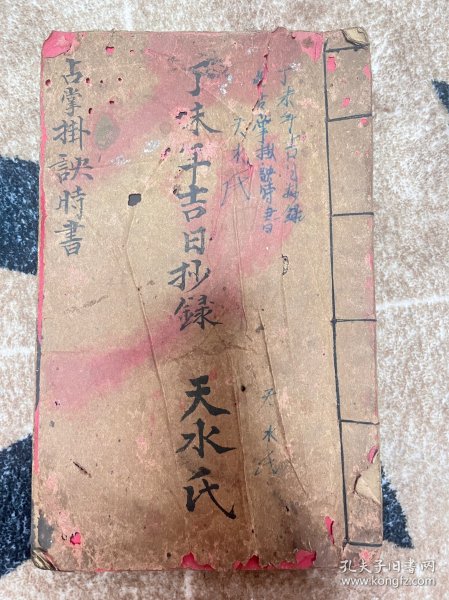 丁未年吉日抄錄
占掌掛訣時書
天水氏
天水氏
丁未年吉日抄錄 天水氏
占掌掛訣時書
孔夫子旧书网
www.kongfz.com